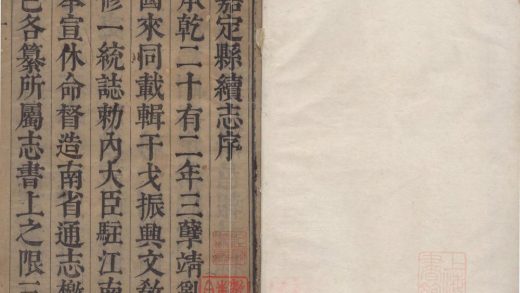 嘉定縣續志序
承乾二十有二年三孽靖劉
國來同載輯干戈振興文敎
修一統誌勅內大臣駐江南
奉宣休命督造南省通志檄
已各纂所屬志書上之限三